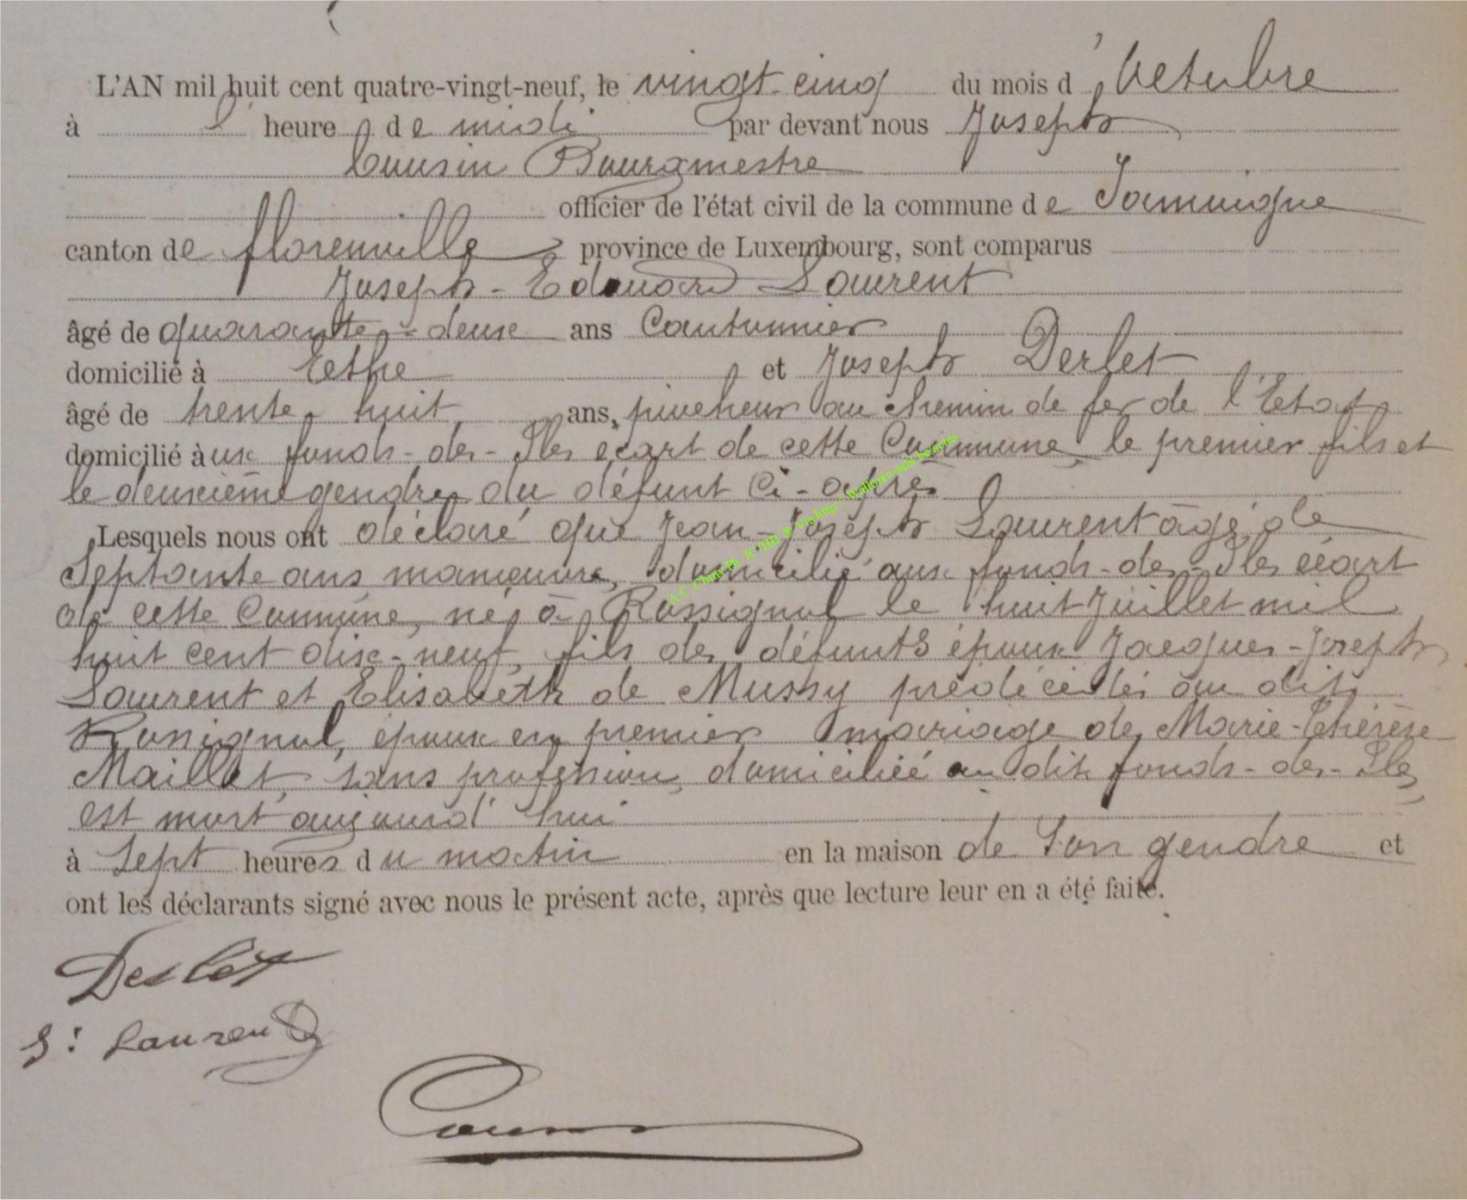 L'AN mil huit cent quatre-vingt-neuf, le vingt-cinq du mois d'Octobre
à l' heure de midi par devant nous Joseph
Cousin Bourgmestre
officier de l'état civil de la commune de Jamoigne
canton de florenville province de Luxembourg, sont comparus
Joseph-Edouard Laurent
âgé de quarante-deux ans Cantonnier
domicilié à Ethe et Joseph Derlet
âgé de trente huit ans, piocheur au chemin de fer de l'Etat
domicilié aux fonds-des-Iles écart de cette Commune, le premier fils et
le deuxième gendre du défunt ci-après
Lesquels nous ont déclaré que Jean-Joseph Laurent âgé de
Septante ans manoeuvre, domicilié aux fonds-des-Iles écart
de cette Commune, né à Rossignol le huit Juillet mil
huit cent dix-neuf, fils des défunts époux Jacques-Joseph
Laurent et Elisabeth de Mussy prédécédés au dit
Rossignol, époux en premier mariage de Marie-Thérèse
Maillet, sans profession, domiciliée au dit fonds-des-Iles
est mort aujourd'hui
à Sept heures du matin en la maison de son gendre et
ont les déclarants signé avec nous le présent acte, après que lecture leur en a été faite.
Derlet
J: Laurent
Cousin